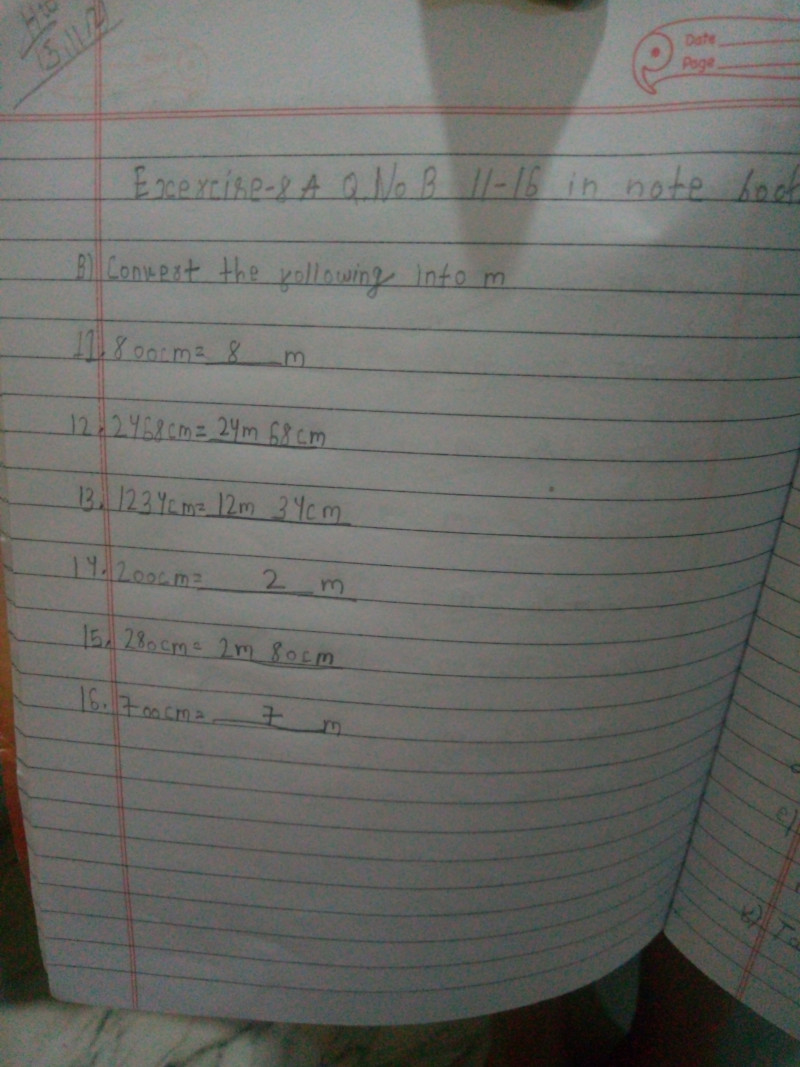 H.W
15.11.21
Date
Page
Excercise-8A Q.No B 11-16 in note book
B) Convert the following into m
11. 800cm= 8 m
12. 2468cm= 24m 68cm
13. 1234cm= 12m 34cm
14. 200cm= 2 m
15. 280cm= 2m 80cm
16. 700cm= 7 m
e)